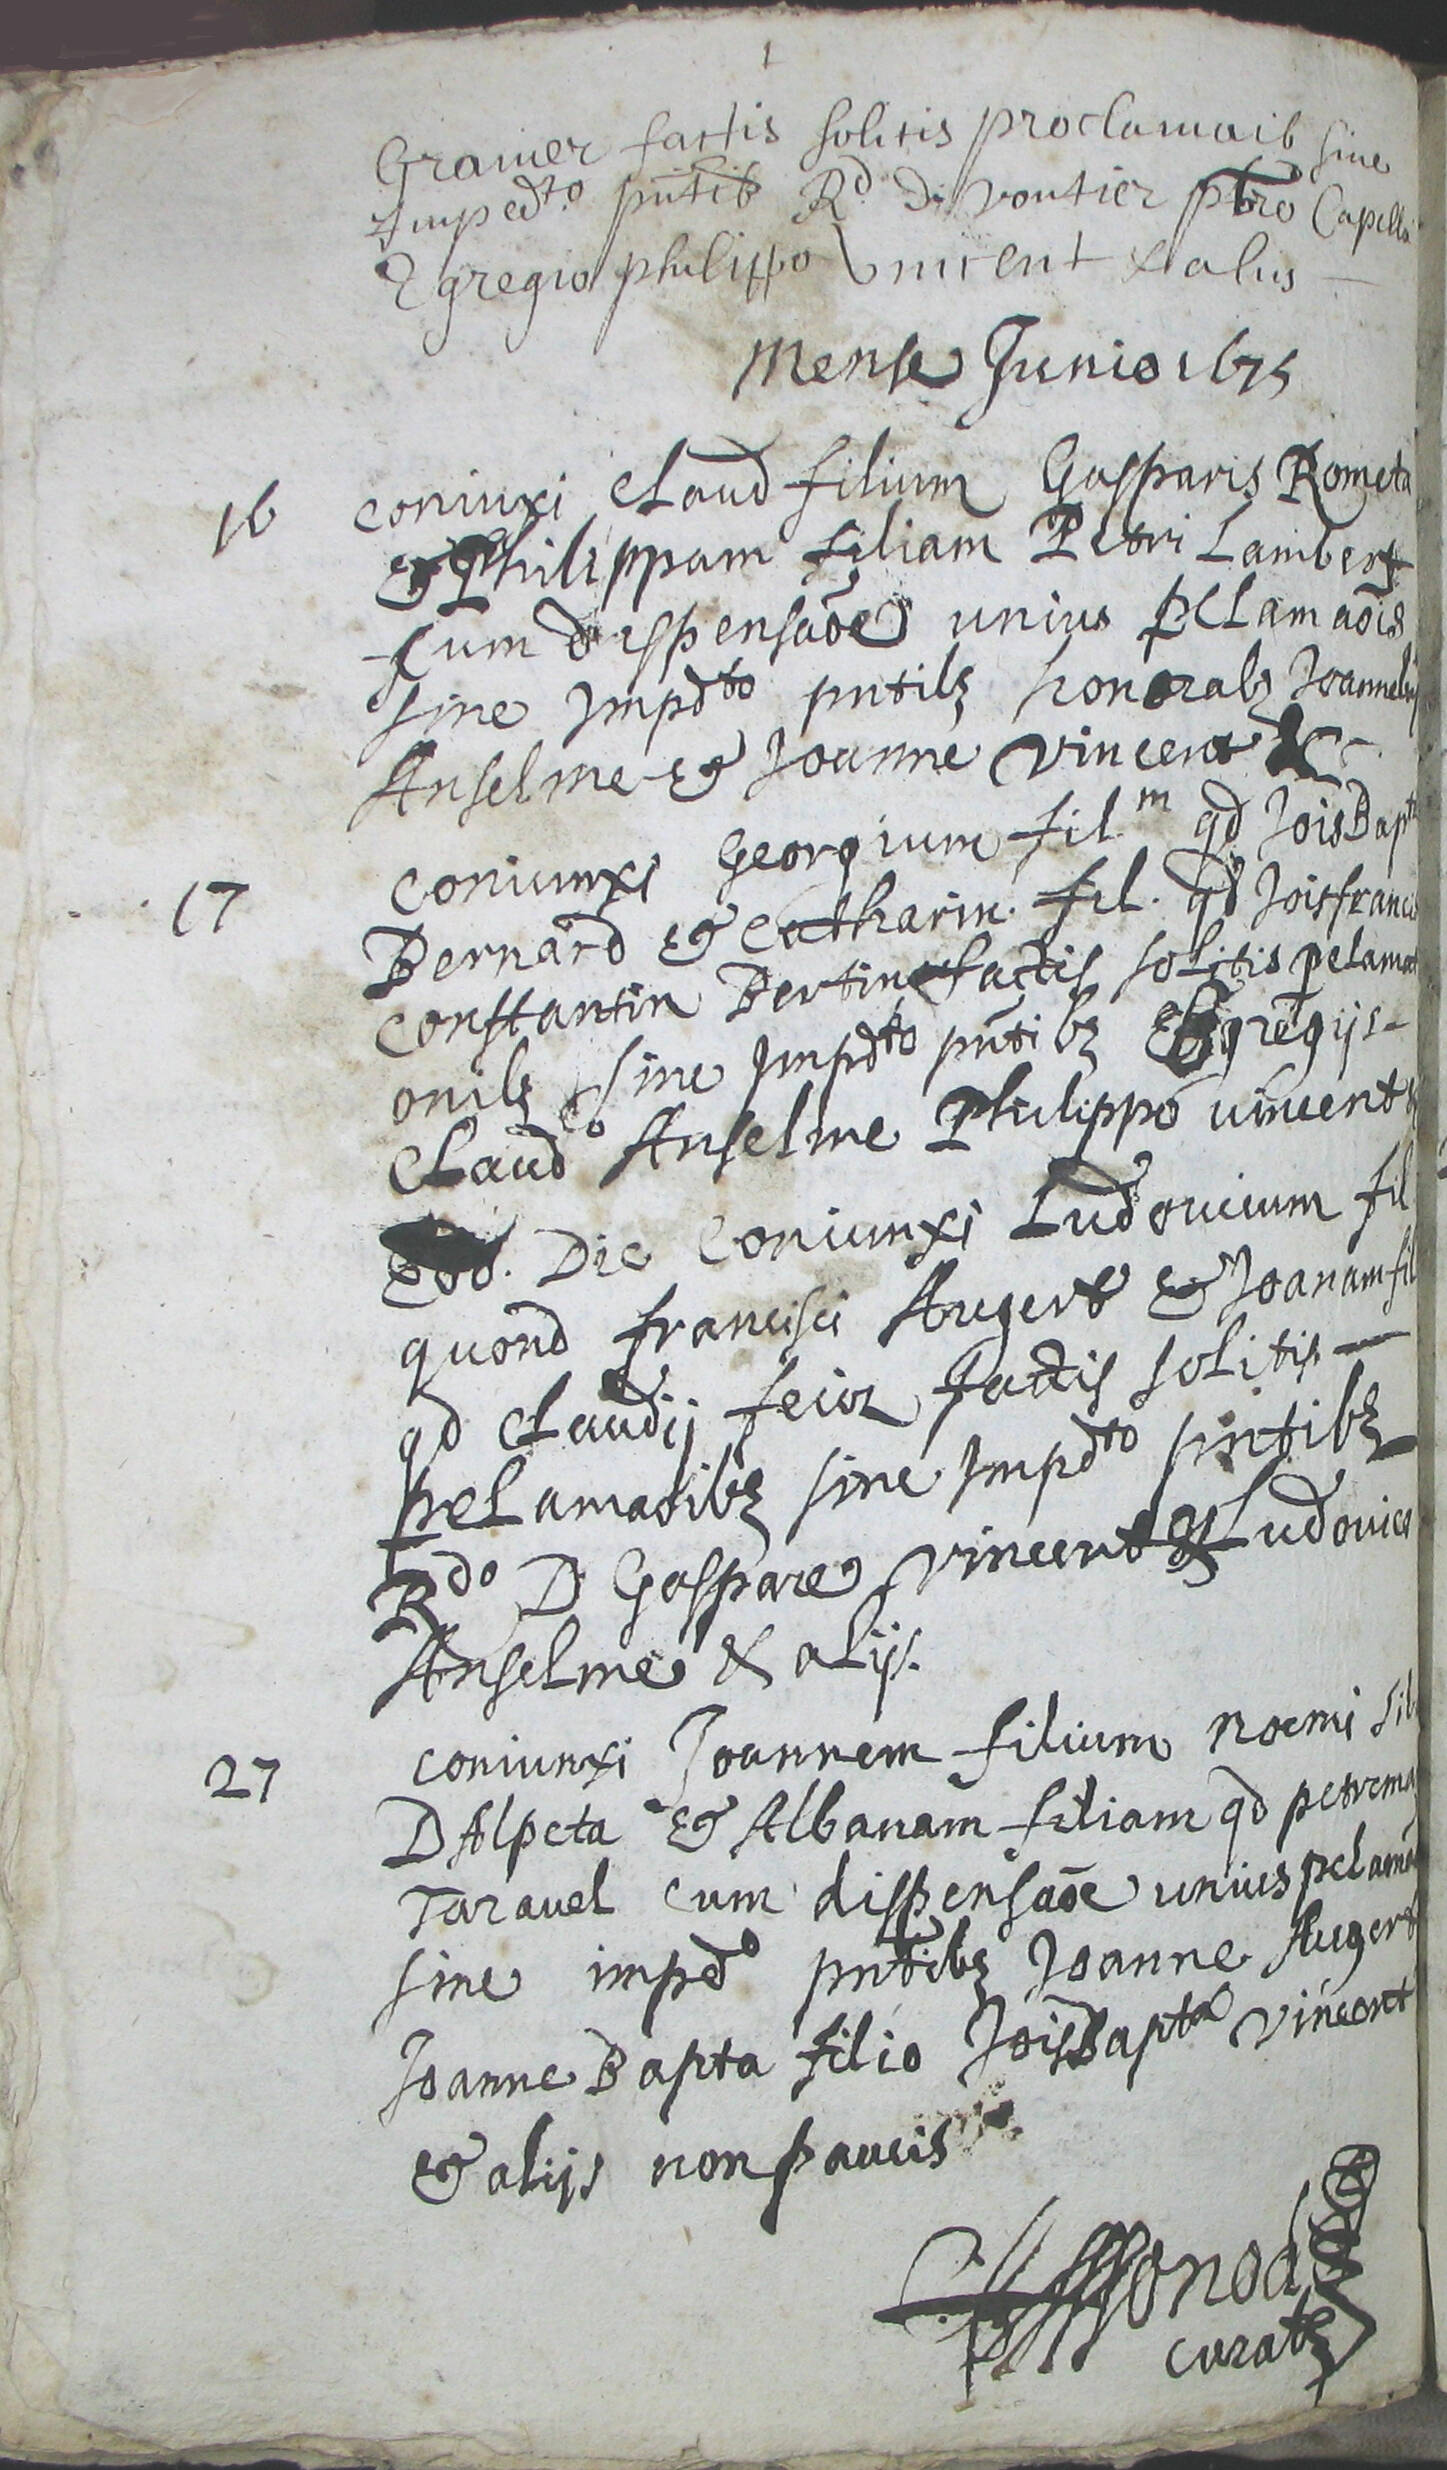 Grainer factis solitis proclamaib sine
Impedto pntib Rd Di voutier pbro Capella
Egregio philippo Vincent & alus
Mense Junio 1675
16 coniuxi Claud filium Gasparis Rometa
& Philippam filiam Petri Lambert
cum dispensaõe unius pclamaõis
sine Impdto pntibz honorabz Joannebz
Anselme & Joanne Vincent &c
17 coniunxi Georgium fil.m qd Jois Bapte
Bernard & Catharin. fil. qd Jois franci
Constantin Bertin factis solitis pclamat
onibz sine Impdto pntibz Egregijs
Claudo Anselme Philippo vincent &
Eod. Die Coniunxi Ludovicum fil
quond francisci Augert & Joanam fil
qd Claudij feior factis solitis
pclamaõibz sine Impdto pntibz
Rdo D Gaspare Vincent & Ludovico
Anselme & alijs.
27 coniunxi Joannem filium noemi
D Alpeta & Albanam filiam qd petrema
Taravel cum dispensaõe unius pclama
sine impedo pntibz Joanne Augert
Joanne Bapta filio Jois Bapta Vincent
& alijs non paucis
curatz